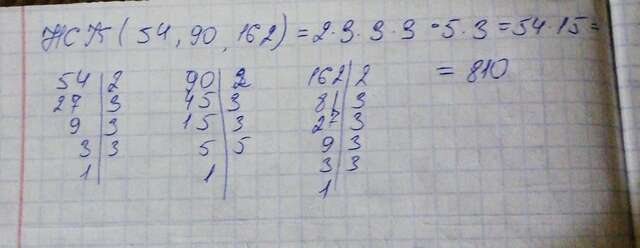 НСК(54, 90, 162) = 2·3·3·3·5·3 = 54·15 =
= 810
54 | 2
27 | 3
9 | 3
3 | 3
1
90 | 2
45 | 3
15 | 3
5 | 5
1
162 | 2
81 | 3
27 | 3
9 | 3
3 | 3
1